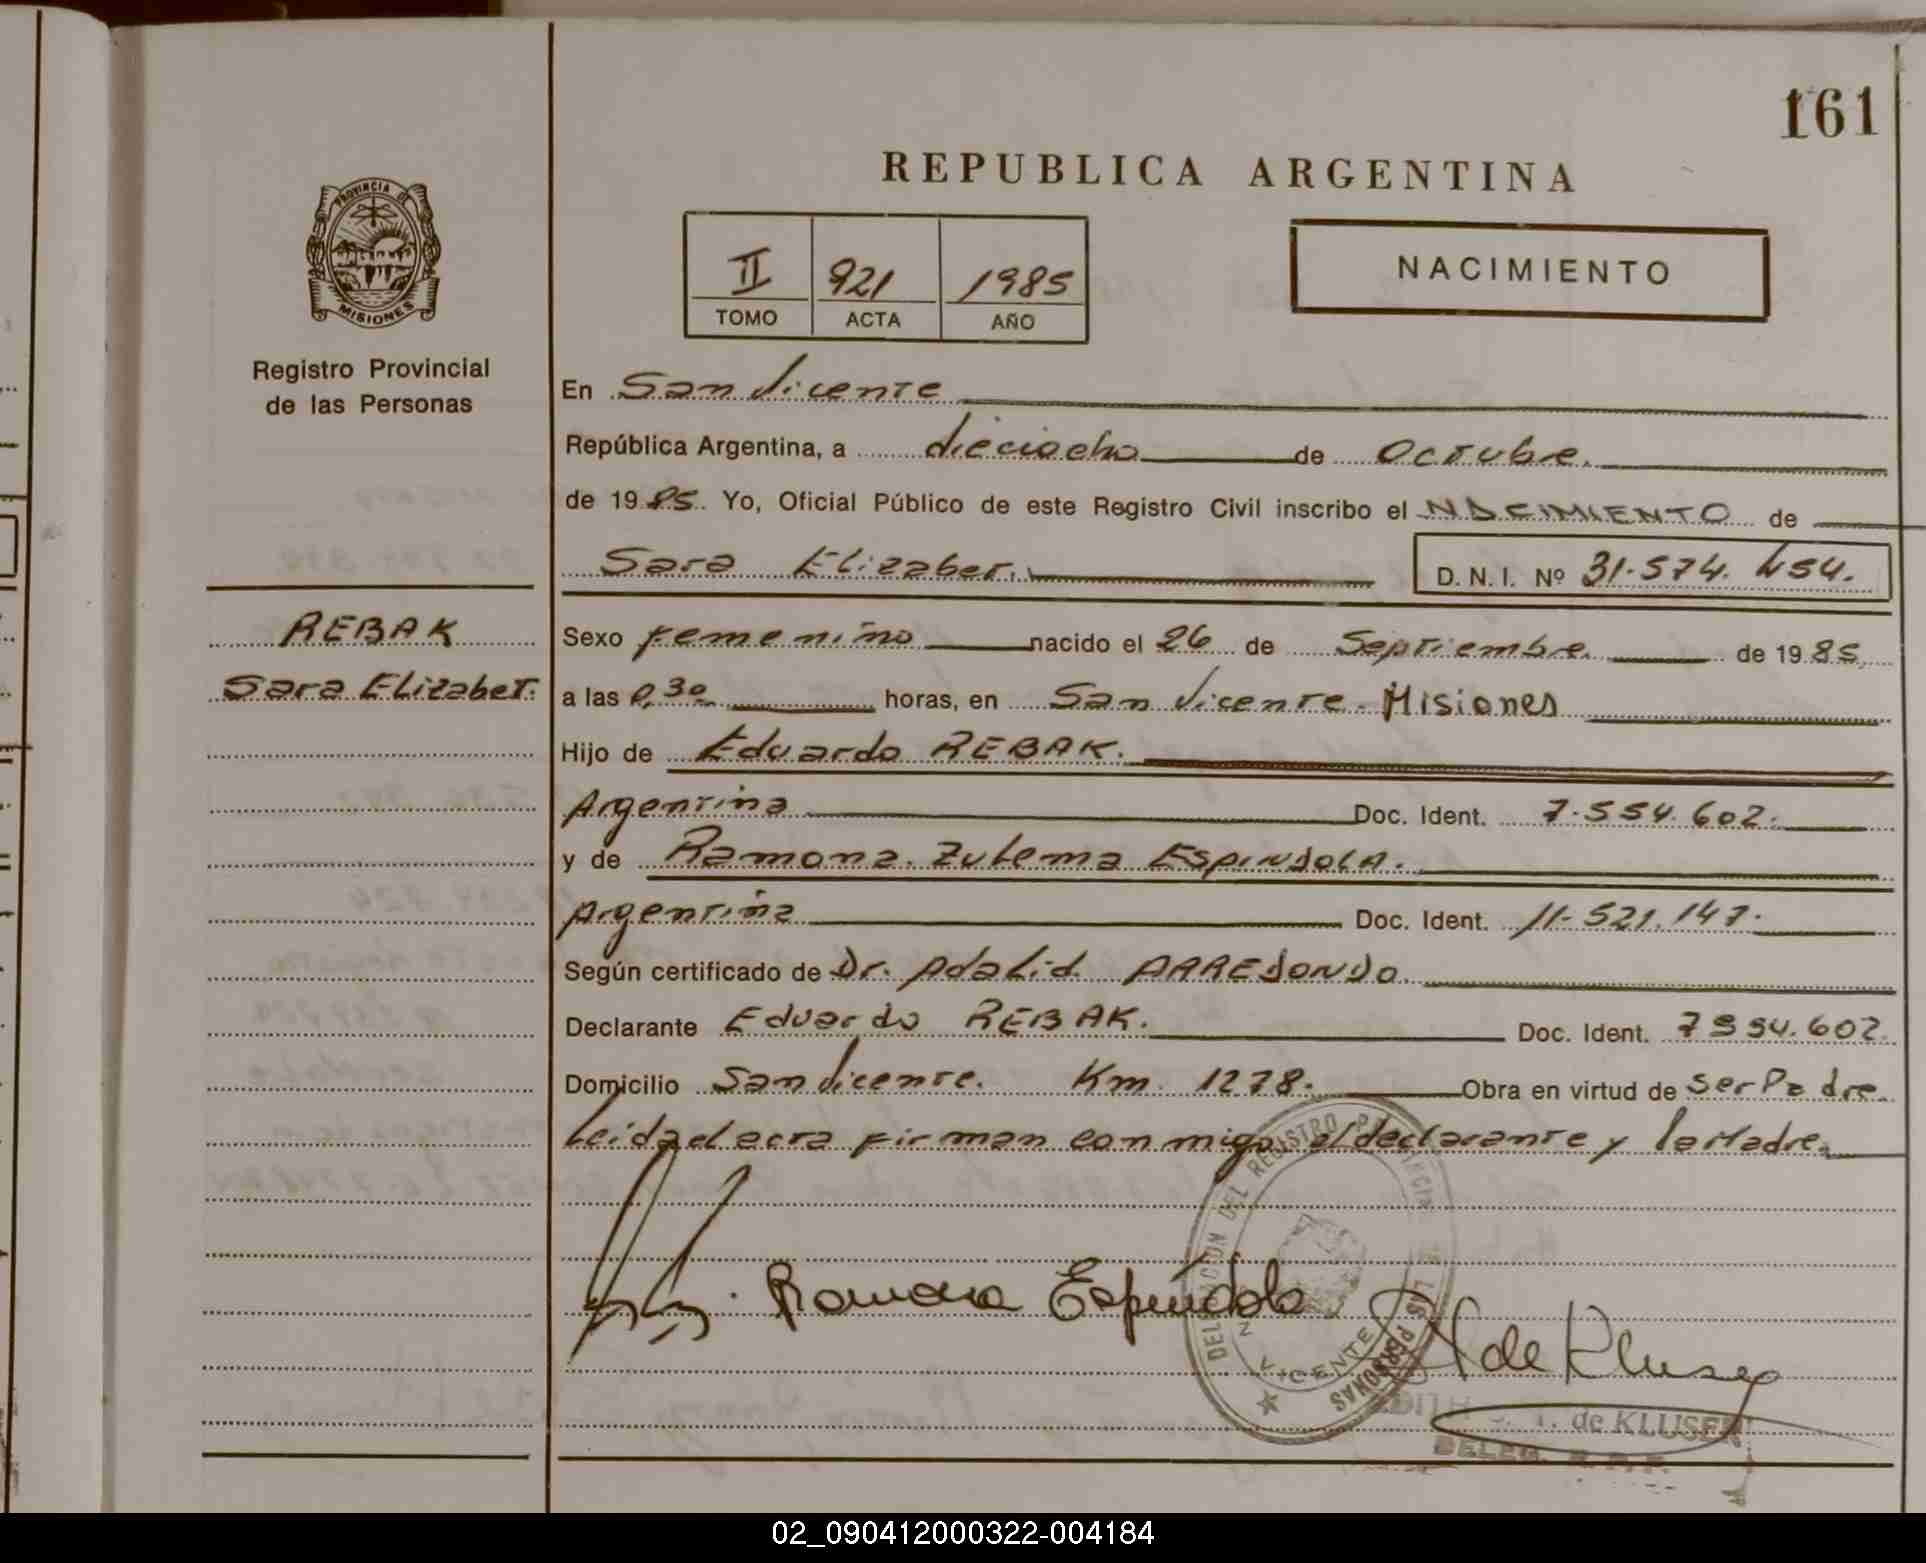 161
REPUBLICA ARGENTINA
PROVINCIA DE
MISIONES
Registro Provincial
de las Personas
II 921 1985
TOMO ACTA AÑO
NACIMIENTO
En San Vicente
República Argentina, a dieciocho de Octubre.
de 1985. Yo, Oficial Público de este Registro Civil inscribo el NACIMIENTO de
Sara Elizabet. D. N. I. Nº 31.574.454.
REBAK
Sara Elizabet.
Sexo femenino nacido el 26 de Septiembre de 1985
a las 0,30 horas, en San Vicente - Misiones
Hijo de Eduardo REBAK.
Argentina Doc. Ident. 7.554.602.
y de Ramona Zulema ESPINDOLA.
Argentina Doc. Ident. 11.521.147.
Según certificado de Dr. Adalid ARREDONDO.
Declarante Eduardo REBAK. Doc. Ident. 7554.602.
Domicilio San Vicente. Km. 1278. Obra en virtud de ser Padre.
Leida el acta firman conmigo, el declarante y la Madre.
Ramona Espíndola
DEL REGISTRO
PERSONAS
VICENTE
de Kluser
de KLUSER
DELEG.
02_090412000322-004184